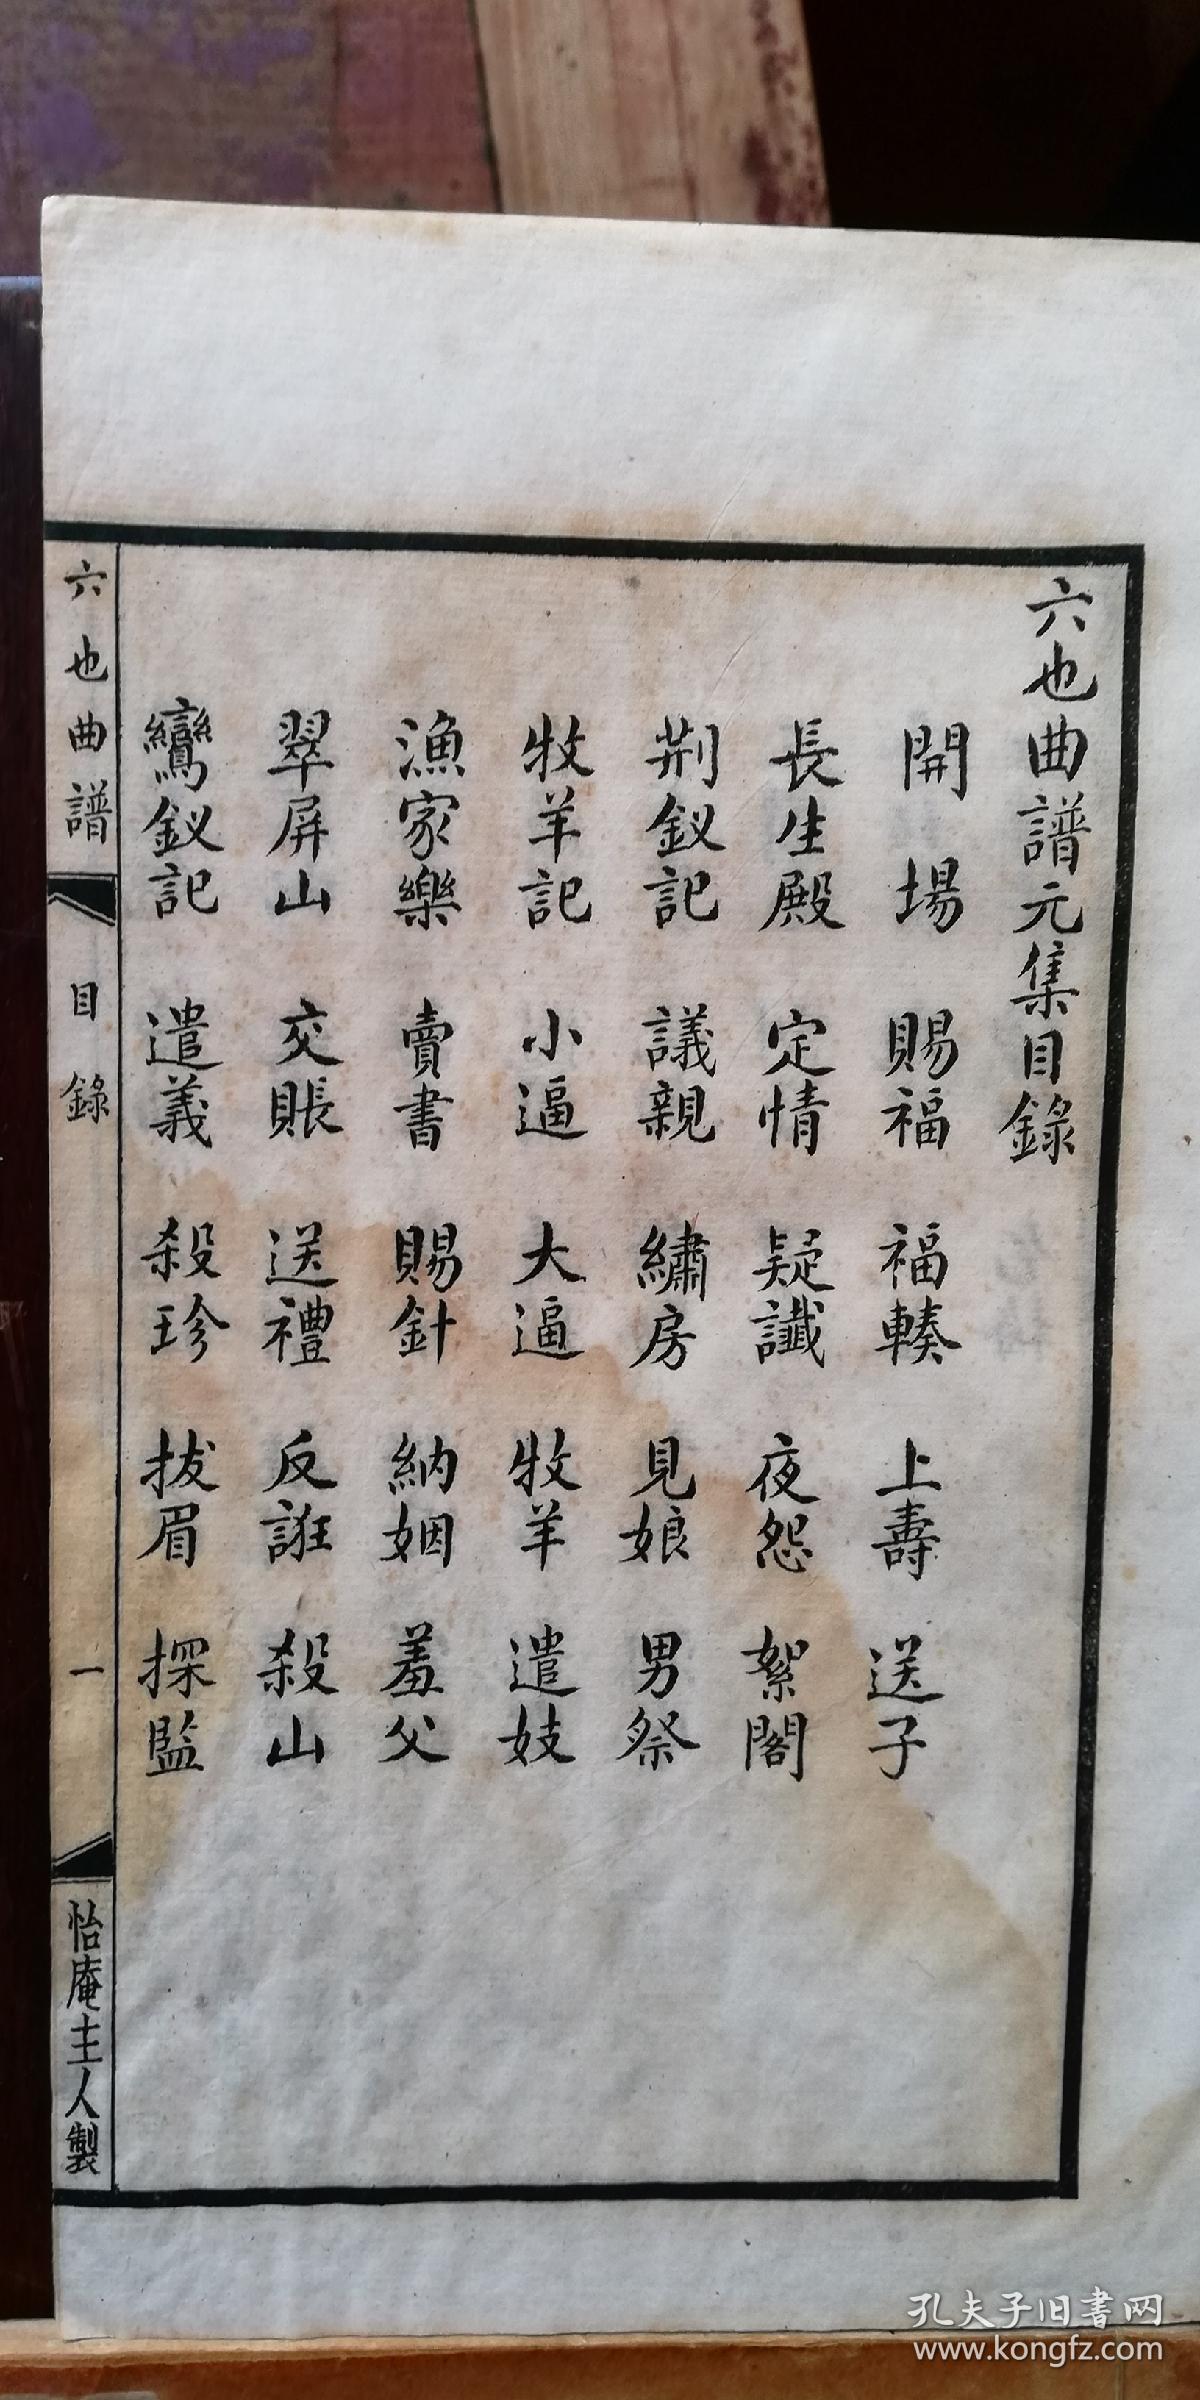 六也曲譜元集目錄
開場 賜福 福輳 上壽 送子
長生殿 定情 疑讖 夜怨 絮閣
荆釵記 議親 繡房 見娘 男祭
牧羊記 小逼 大逼 牧羊 遣妓
漁家樂 賣書 賜針 納姻 羞父
翠屏山 交賬 送禮 反誑 殺山
鸞釵記 遣義 殺珍 拔眉 探監
六也曲譜 目錄 一 怡庵主人製
孔夫子旧書网
www.kongfz.com